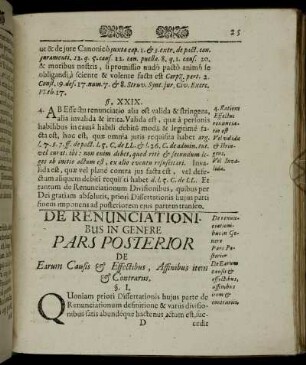 25
ut & de jure Canonico juxta cap. 1. & 3. extr. de pact. can.
juramenti. 22. q. 5. conf. 22. can. pacto. 8. q. 1. conf. 20.
& moribus nostris, si promissio nudo pacto animo se
obligandi à sciente & volente facta est Carpz. part. 2.
Const. 19. def. 17. num. 7. & 8. Struv. Synt. jur. Civ. Exerc.
th. 17.
§. XXIX.
4. Ab Effectu renunciatio alia est valida & stringens,
alia invalida & irrita. Valida est, quæ à personis
habilibus in causâ habili debito modo & legitimè fa-
cta est, hoc est, quæ omnia juris requisita habet arg.
mine quod
invalida est, quæ vel planè contra jus facta est, vel defe-
ctum aliquem debiti requisiti habet d. l. 5. C. de LL. Et
tantum de Renunciationum Divisionibus, quibus per
Dei gratiam absolutis, priori Dissertationis hujus parti
finem imponens ad posteriorem ejus partem transeo,
4. Ratione
Effectus
renunciatio
est
Vel valida
& strin-
gens.
Vel Inva-
lida.
DE RENUNCIATIONI-
BUS IN GENERE
PARS POSTERIOR
DE
Earum Causis & Effectibus, Affinibus item
& Contrariis.
De renun-
ciationi-
bus in Ge-
nere
Pars Po-
sterior
De Earum
causis &
effectibus,
affinibus
item &
contrariis.
§. I.
QUoniam priori Dissertationis hujus parte de
Renunciationum definitione & variis divisio-
nibus satis abundeque hactenus actum est, suc-
D
cedit